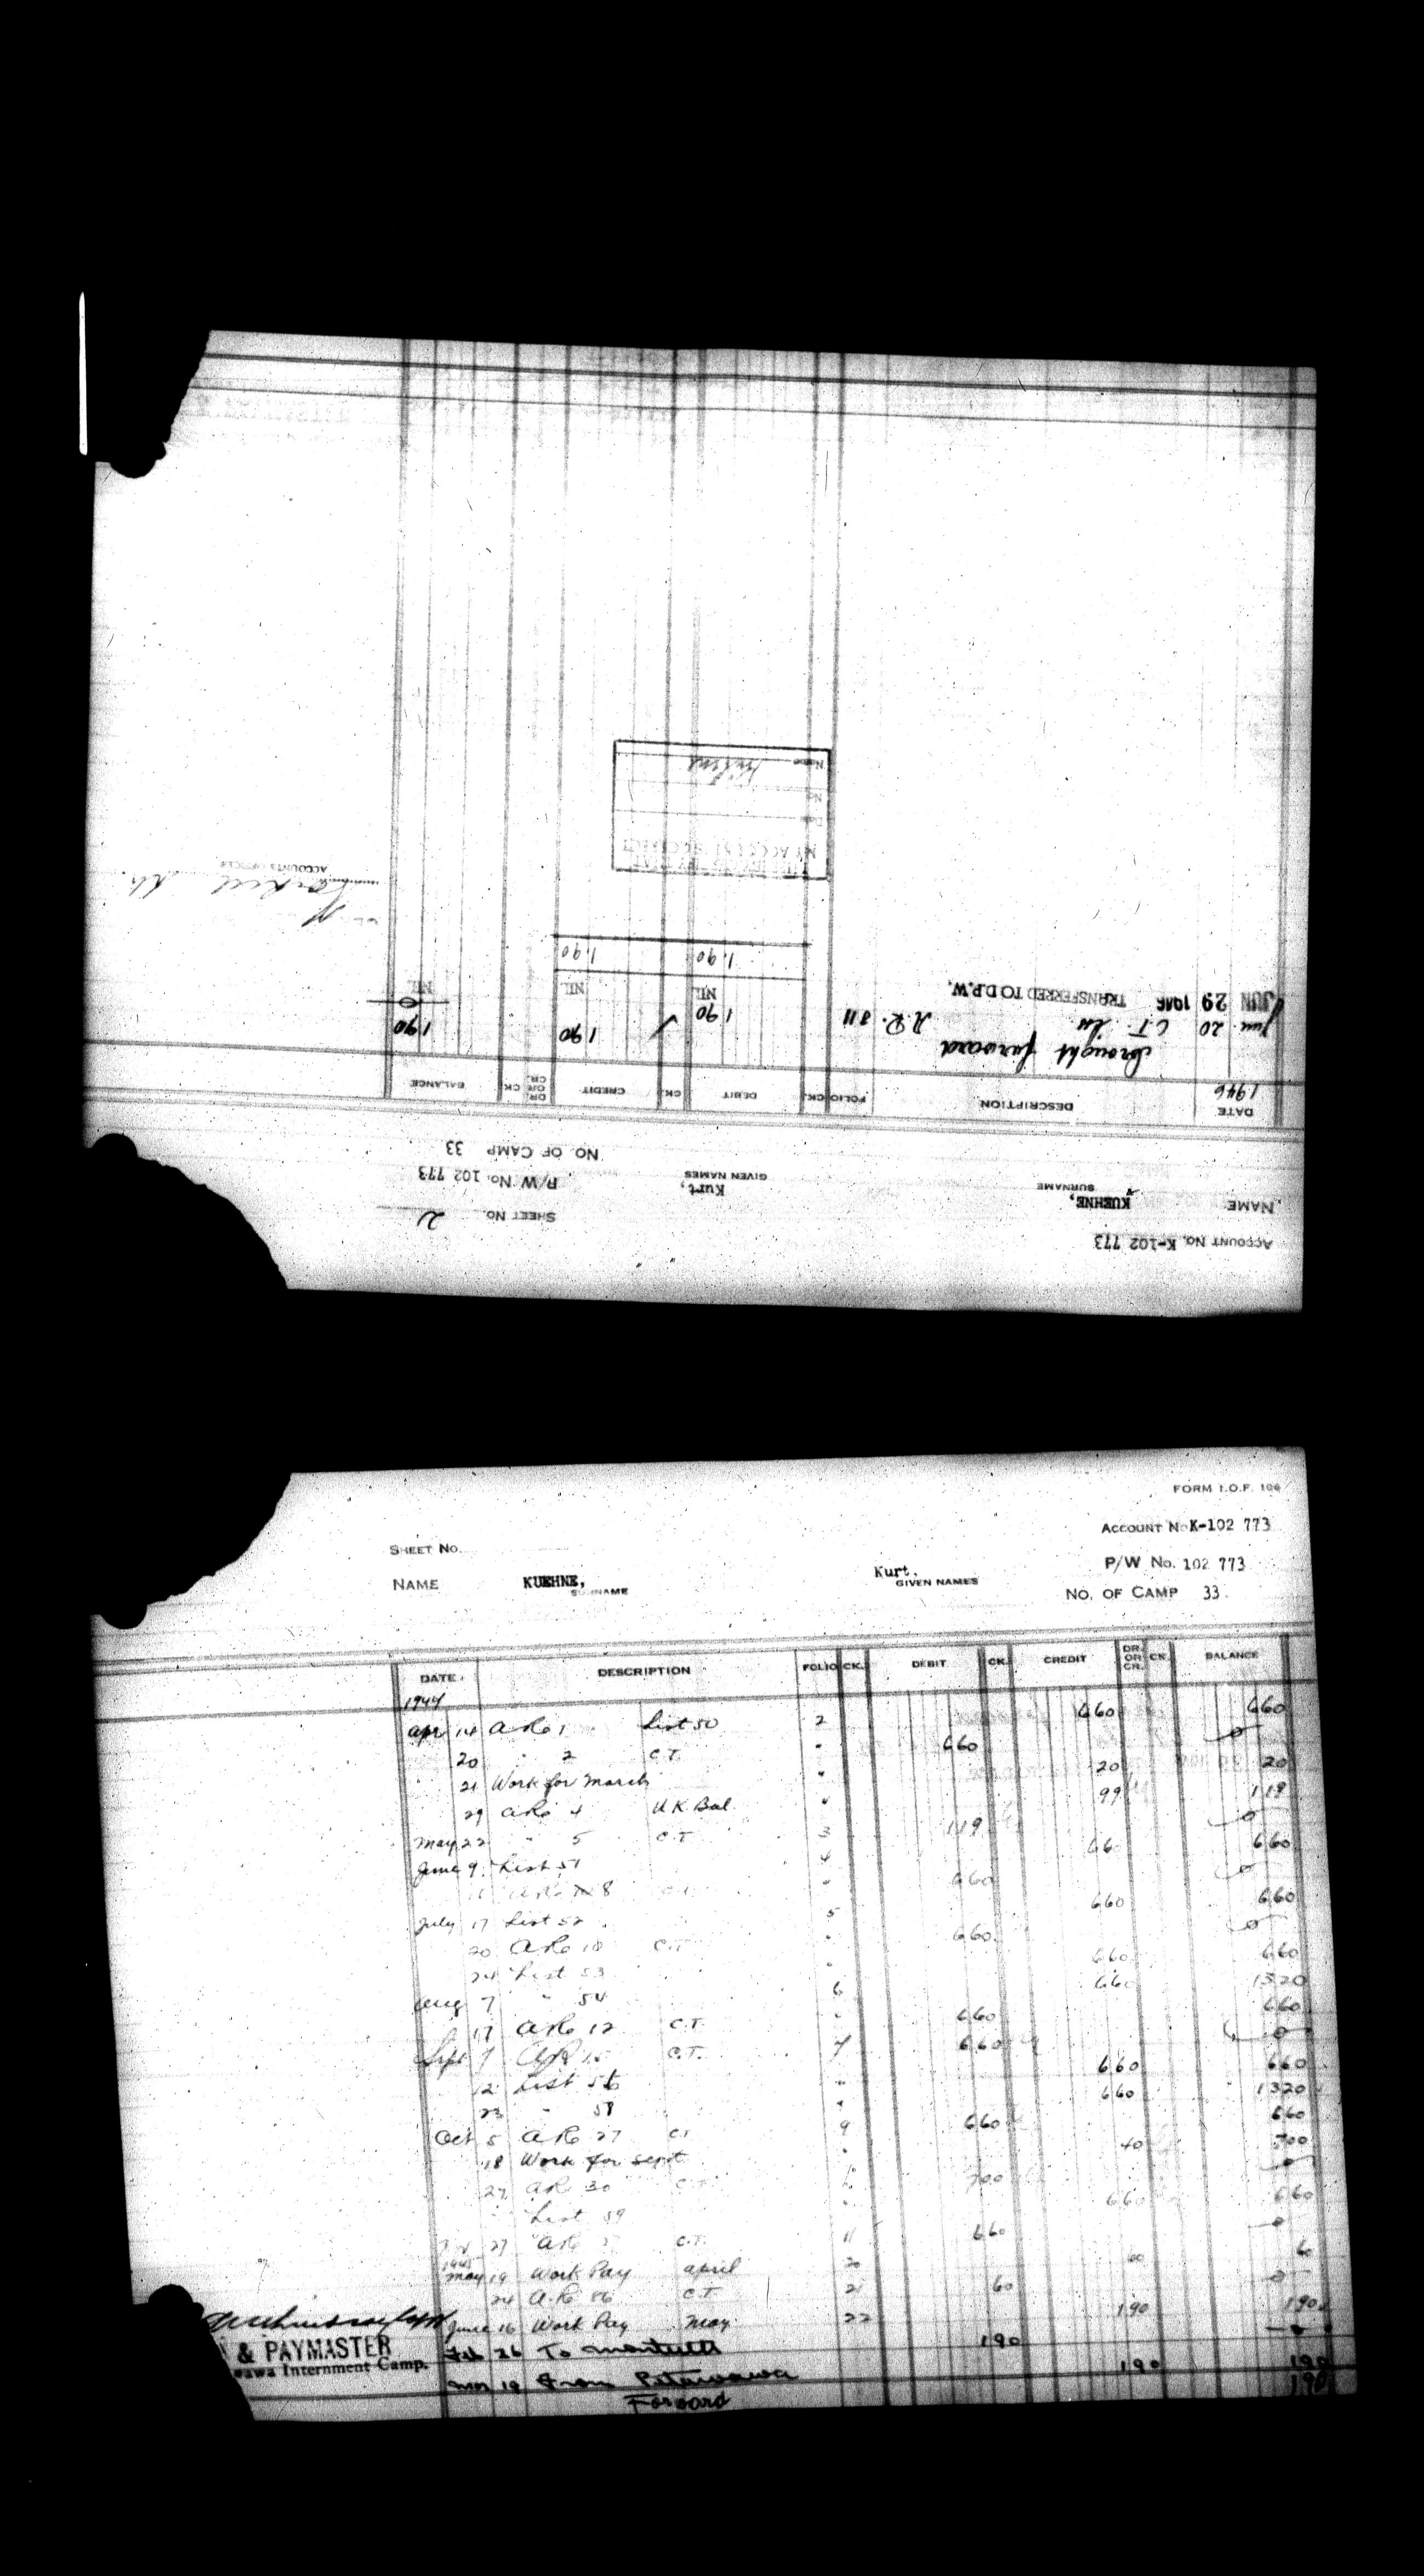 ACCOUNT No. K-102 773
NAME KUEHNE, Kurt, SHEET NO. 2
SURNAME GIVEN NAMES P/W No. 102 773
NO. OF CAMP 33
DATE DESCRIPTION FOLIO CK. DEBIT CK. CREDIT DR. OR CR. CK. BALANCE
1946
Brought forward 1 90 1 90
Jun. 20 C.T. A.R. 811 1 90 0
JUN 29 1946 TRANSFERRED TO D.P.W. NIL NIL NIL
1.90 1.90
ACCOUNTS OFFICER
MY ACCOUNT IS CORRECT
Date
No.
Name
FORM I.O.F. 106
ACCOUNT No K-102 773
SHEET NO.
P/W No. 102 773
NAME KUEHNE, Kurt.
SURNAME GIVEN NAMES
NO. OF CAMP 33.
DATE DESCRIPTION FOLIO CK. DEBIT CK. CREDIT DR. OR CR. CK. BALANCE
1944
Apr 14 ARO 1 List 50 2 6 60 6 60
20 " 2 C.T. " 6 60 0
21 Work for March " 20 20
29 ARO 4 U.K. Bal. " 99 1 19
May 22 " 5 C.T. 3 1 19 0
June 9 List 51 4 6 60
ARO 8 " 6 60 0
July 17 List 52 5 6 60 6 60
20 ARO 10 C.T. " 6 60 0
24 List 53 " 6 60 6 60
Aug 7 " 54 6 6 60 13 20
17 ARO 12 C.T. " 6 60 6 60
Sept 7 ARO 15 C.T. 7 6 60 0
12 List 56 " 6 60 6 60
23 " 58 " 6 60 13 20
Oct 5 ARO 27 C.T. 9 6 60 6 60
18 Work for Sept " 40 7 00
27 ARO 30 C.T. 10 7 00 0
List 59 " 6 60 6 60
27 ARO C.T. 11 6 60 0
1945
May 19 Work Pay April 20 60 60
24 A.R. 86 C.T. 21 60 0
June 16 Work Pay May 22 1 90 1 90
Feb 26 To Monteith 1 90 0
Mar 19 From Petawawa 1 90 1 90
Forward 1 90
& PAYMASTER
Internment Camp.